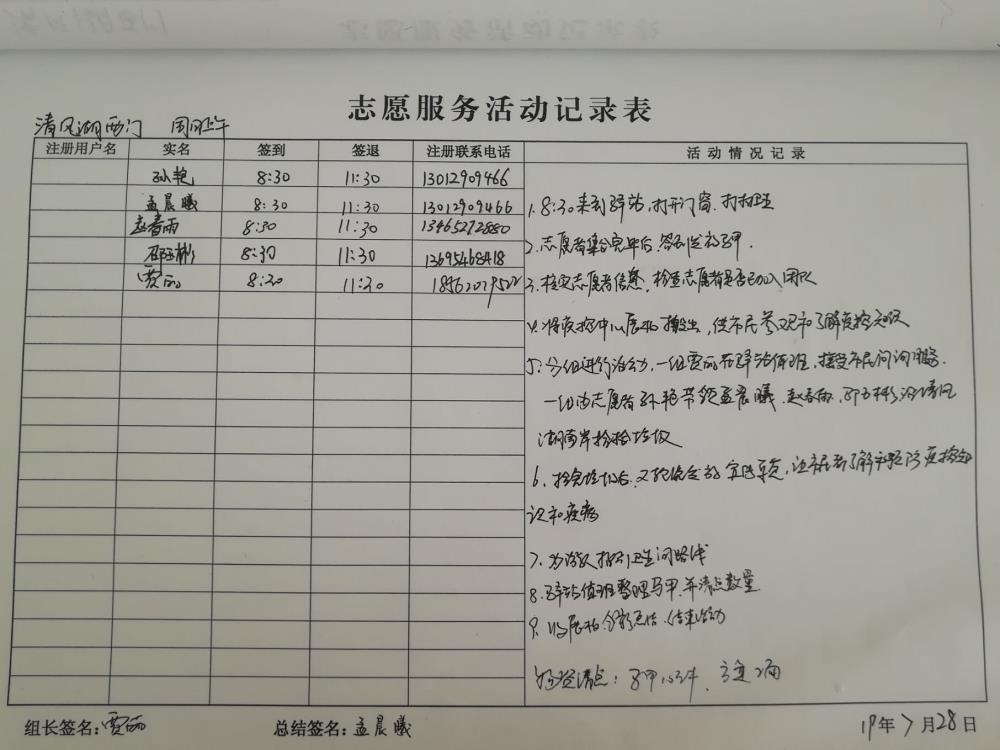 志愿服务活动记录表
清风湖西门 周日上午
注册用户名 实名 签到 签退 注册联系电话 活动情况记录
孙艳 8:30 11:30 13012909466
孟晨曦 8:30 11:30 13012909466
赵春雨 8:30 11:30 13465272880
8:30 11:30 13695468418
贾丽 8:20 11:30
1. 8:30来到驿站,打开门窗,打扫卫生
2. 志愿者集合完毕后,签到发放马甲.
3. 核实志愿者信息,检查志愿者是否已加入团队
4. 将疾控中心展板搬出,供市民参观和了解疾控知识
5. 分组进行活动,一组贾丽在驿站值班,接受市民问询服务.
一组由志愿者孙艳带领孟晨曦、赵春雨、沿清风
湖南岸捡拾垃圾
6. 捡完垃圾后,又轮流发放宣传页,让市民了解疾控知
识和疾病
7. 为游人指引卫生间路线
8. 驿站值班整理马甲,并清点数量
9. 收展板,结束活动
物资清点:马甲
组长签名:贾丽 总结签名:孟晨曦 19年7月28日